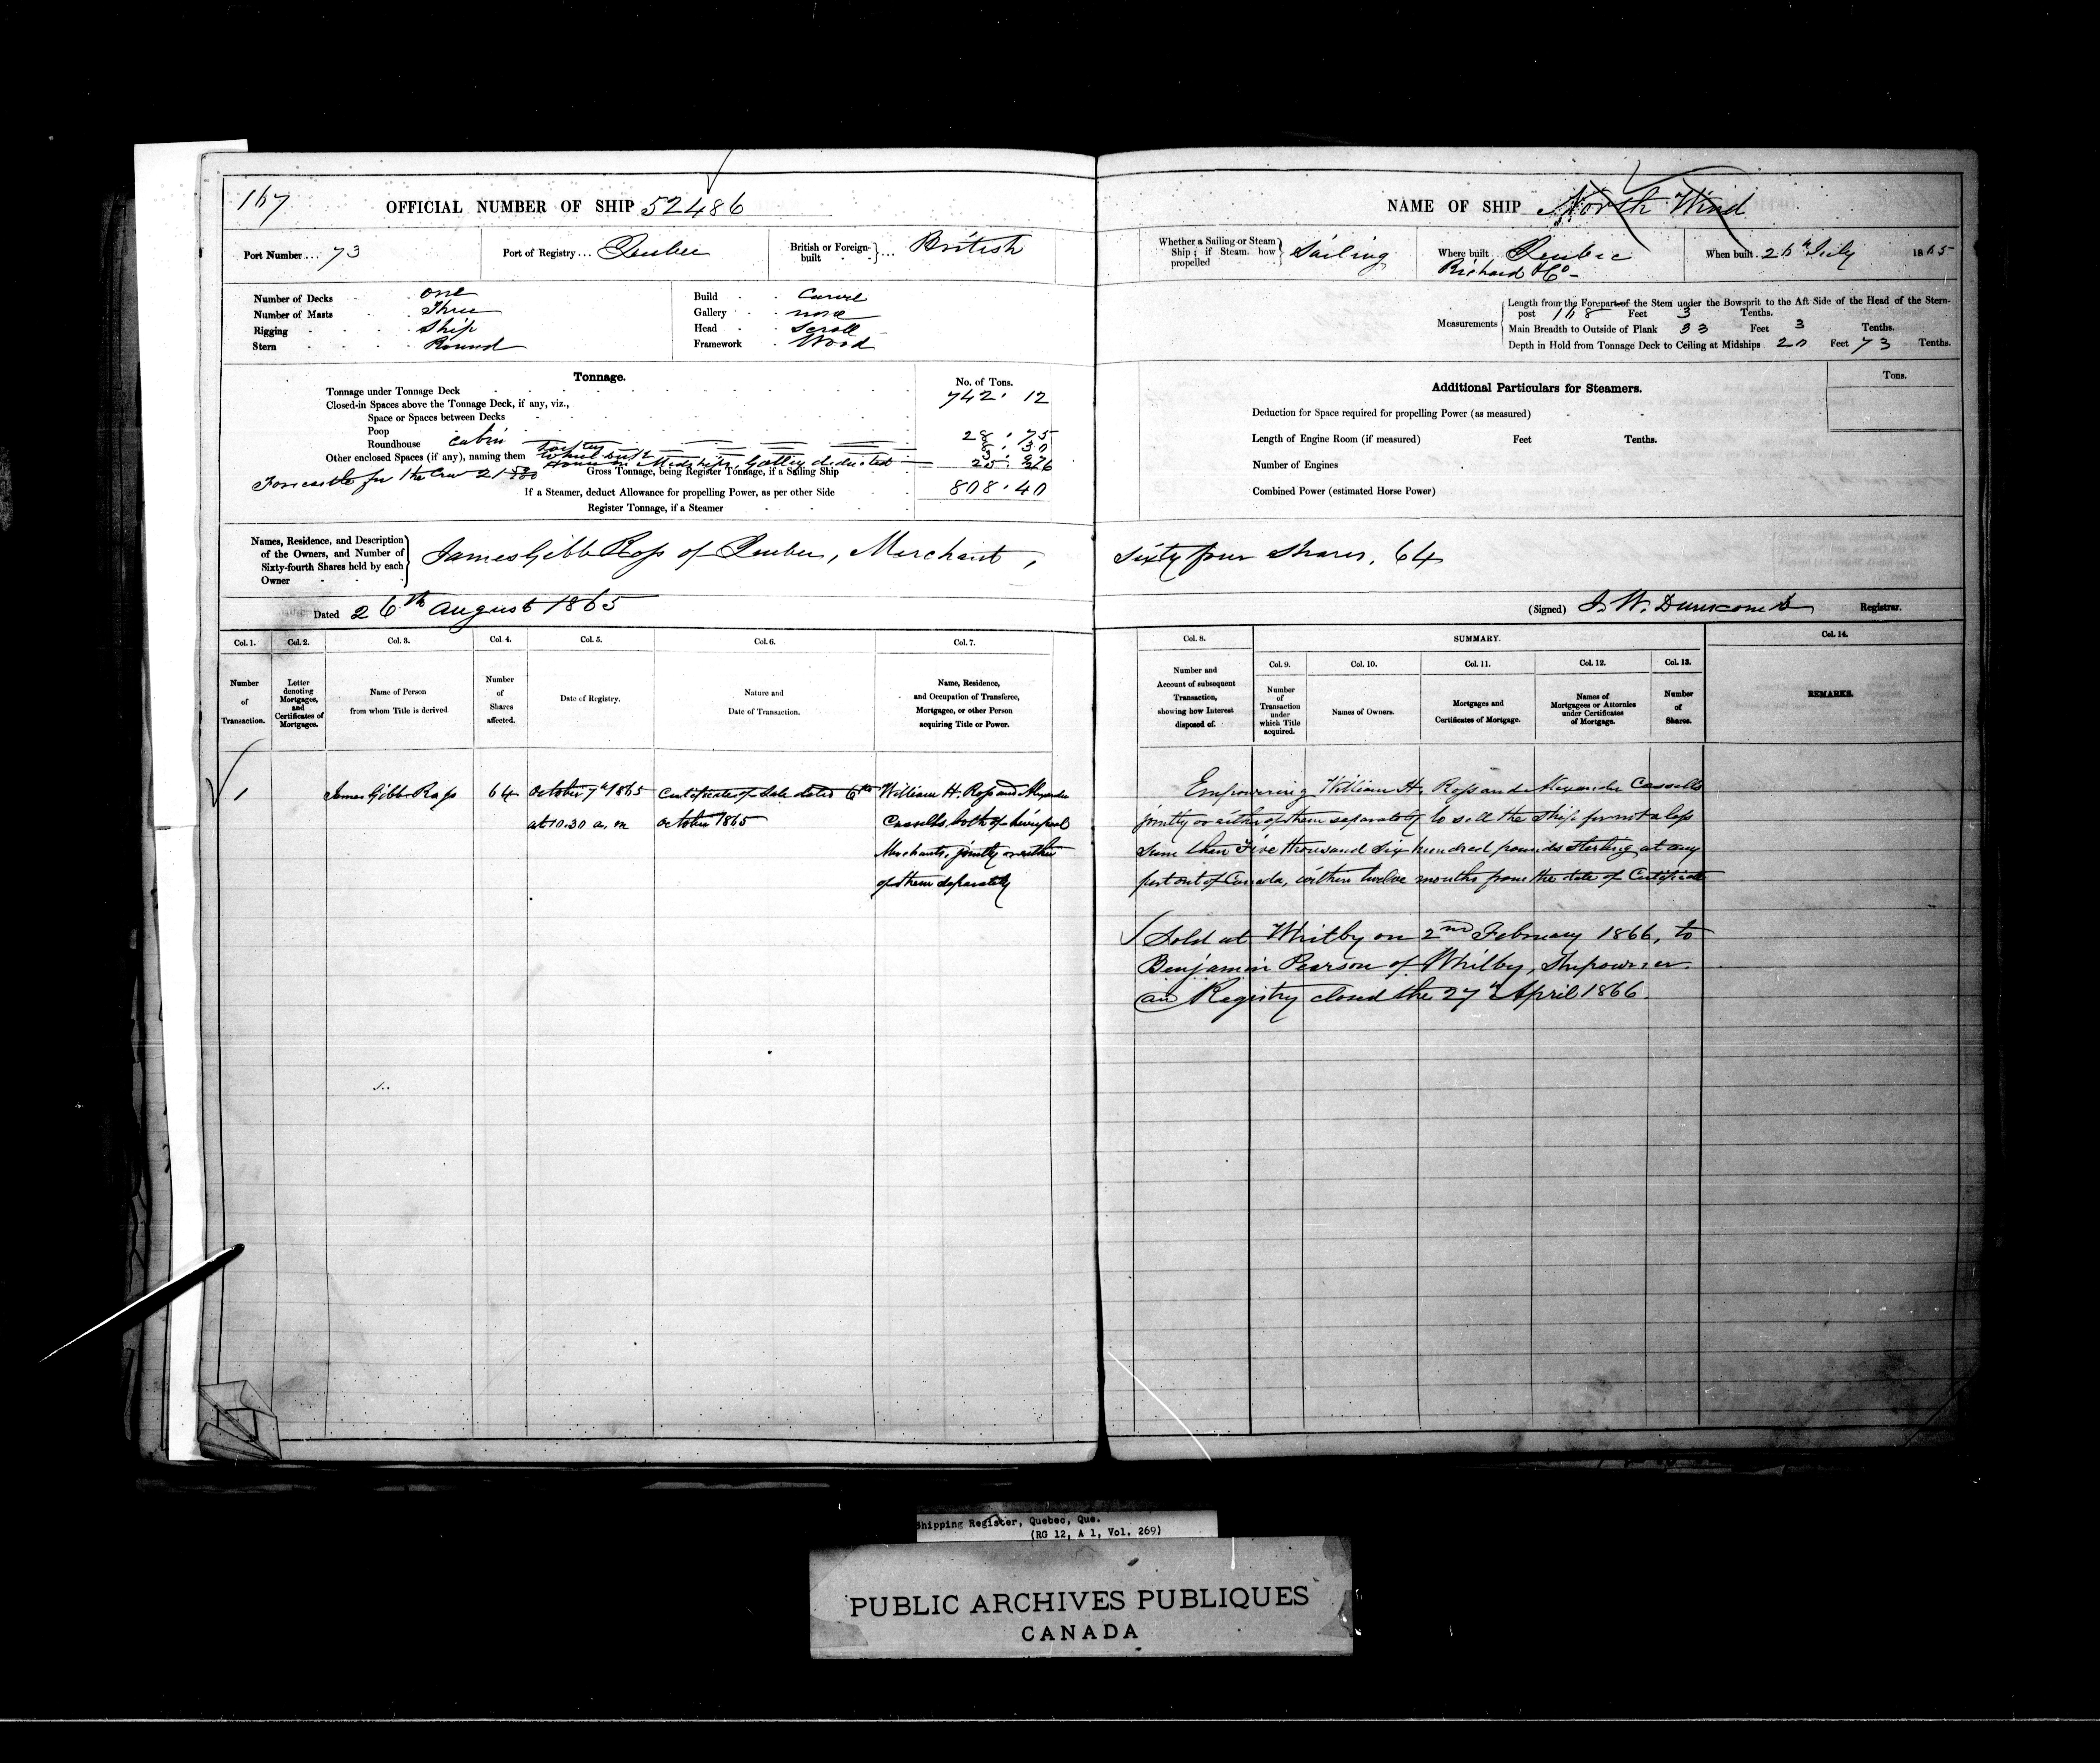 167
OFFICIAL NUMBER OF SHIP 52486
Port Number ... 73
Port of Registry ... Quebec
British or Foreign-built ... British
Number of Decks one
Number of Masts Three
Rigging Ship
Stern Round
Build Carvel
Gallery none
Head Scroll
Framework Wood
Tonnage.
No. of Tons.
Tonnage under Tonnage Deck 742.12
Closed-in Spaces above the Tonnage Deck, if any, viz.,
Space or Spaces between Decks
Poop
Roundhouse cabin 28.75
Other enclosed Spaces (if any), naming them
House Midships, Galley deducted
Forecastle for the Crew 21
Gross Tonnage, being Register Tonnage, if a Sailing Ship
808.40
If a Steamer, deduct Allowance for propelling Power, as per other Side
Register Tonnage, if a Steamer
Names, Residence, and Description
of the Owners, and Number of
Sixty-fourth Shares held by each
Owner
James Gibb Ross of Quebec, Merchant,
Dated 26th August 1865
Col. 1. Col. 2. Col. 3. Col. 4. Col. 5. Col. 6. Col. 7.
Number of Transaction.
Letter denoting Mortgages, and Certificates of Mortgages.
Name of Person from whom Title is derived
Number of Shares affected.
Date of Registry.
Nature and Date of Transaction.
Name, Residence, and Occupation of Transferee, Mortgagee, or other Person acquiring Title or Power.
1 James Gibb Ross 64 October 7th 1865 Certificate of Sale dated 6th William H. Ross and Alexander
at 10.30 a.m October 1865 Cassells both of Liverpool
Merchants, jointly or either
of them separately
NAME OF SHIP North Wind
Whether a Sailing or Steam Ship; if Steam how propelled Sailing
Where built Quebec
Richard & Co
When built 26th July 1865
Measurements
Length from the Forepart of the Stem under the Bowsprit to the Aft Side of the Head of the Stern-
post 168 Feet 3 Tenths.
Main Breadth to Outside of Plank 33 Feet 3 Tenths.
Depth in Hold from Tonnage Deck to Ceiling at Midships 20 Feet 73 Tenths.
Additional Particulars for Steamers.
Tons.
Deduction for Space required for propelling Power (as measured)
Length of Engine Room (if measured) Feet Tenths.
Number of Engines
Combined Power (estimated Horse Power)
Sixty four shares. 64
(Signed) J. W. Dunscomb Registrar.
Col. 8. SUMMARY. Col. 14.
Col. 9. Col. 10. Col. 11. Col. 12. Col. 13.
Number and Account of subsequent Transaction, showing how Interest disposed of.
Number of Transaction under which Title acquired.
Names of Owners.
Mortgages and Certificates of Mortgage.
Names of Mortgagees or Attornies under Certificates of Mortgage.
Number of Shares.
REMARKS.
Empowering William H. Ross and Alexander Cassells
jointly or either of them separately to sell the Ship for not a less
sum than Five thousand Six hundred pounds sterling, at any
port out of Canada, within twelve months from the date of Certificate
Sold at Whitby on 2nd February 1866, to
Benjamin Pearson of Whitby, Shipowner.
Registry closed the 27th April 1866.
Shipping Register, Quebec, Que.
(RG 12, A 1, Vol. 269)
PUBLIC ARCHIVES PUBLIQUES
CANADA